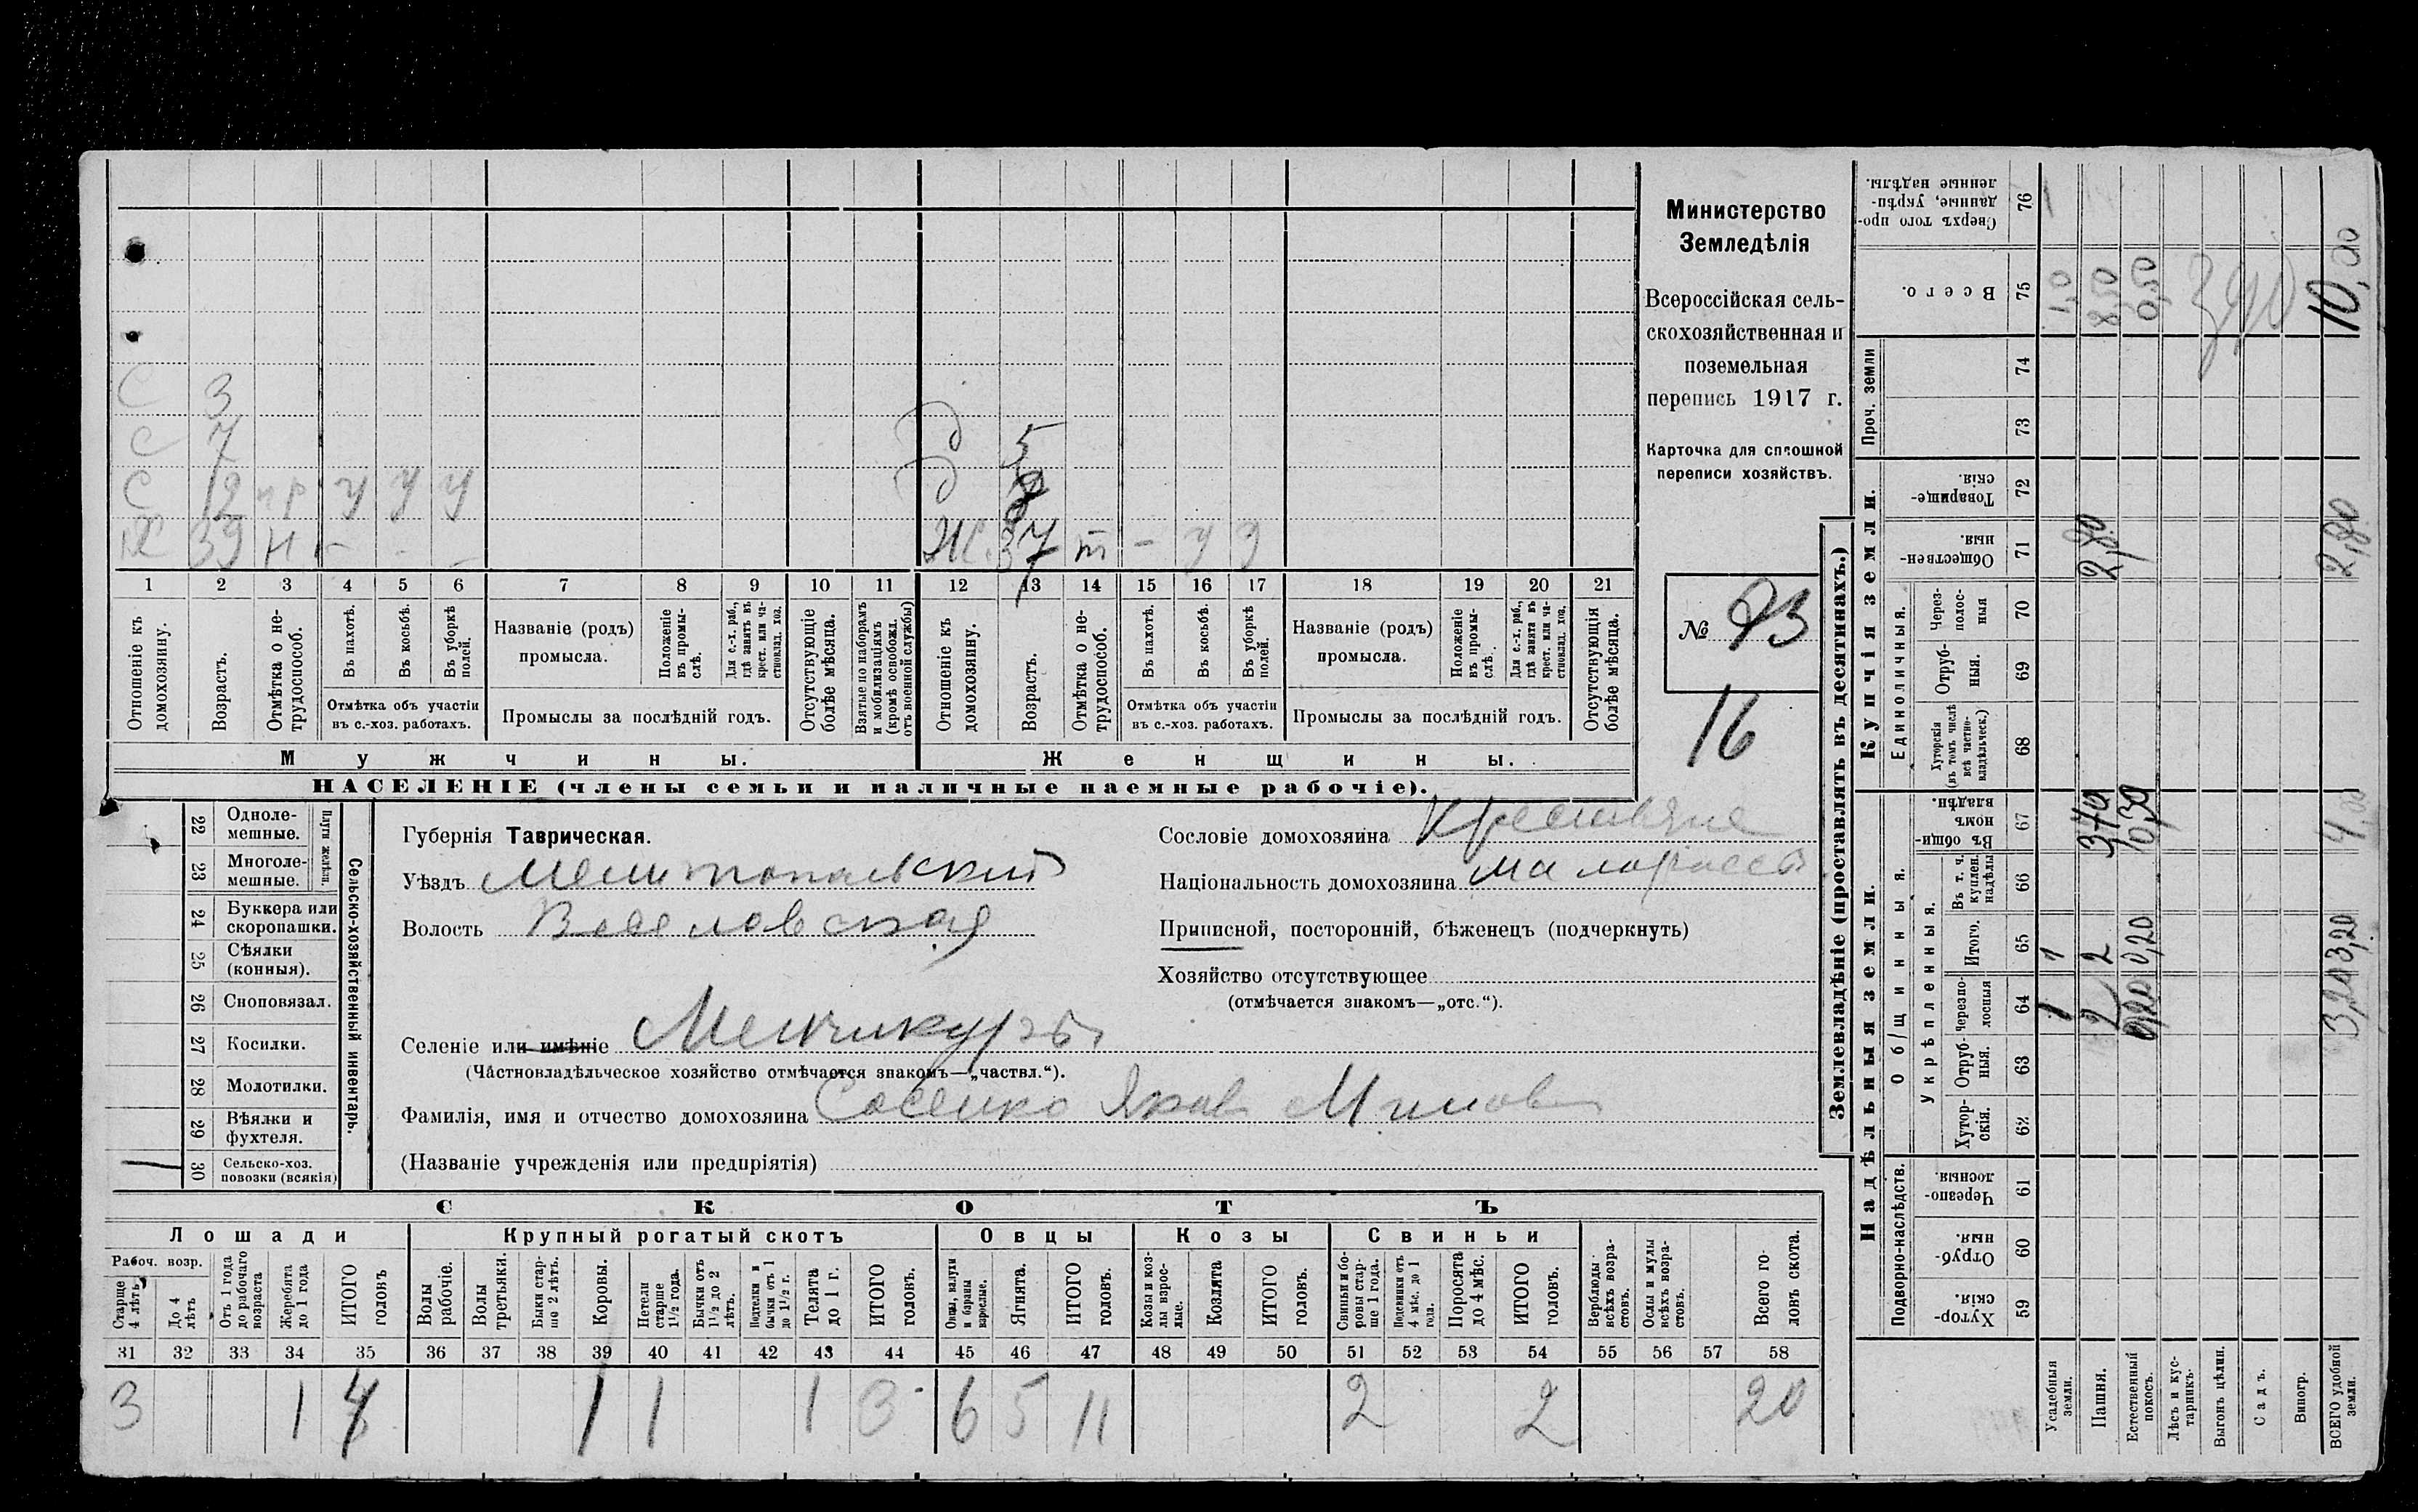 Министерство
Земледѣлія
Всероссійская сель-
скохозяйственная и
поземельная
перепись 1917 г.
Карточка для сплошной
переписи хозяйствъ.
№ 93
16
С 3
С 7 д 5
С 12 нр у у у д
Х 39 н - - - Ж. 37 т - у у
1 2 3 4 5 6 7 8 9 10 11 12 13 14 15 16 17 18 19 20 21
Отношеніе къ домохозяину.
Возрастъ.
Отмѣтка о не-трудоспособ.
Въ пахотѣ.
Въ косьбѣ.
Въ уборкѣ полей.
Отмѣтка объ участіи
въ с.-хоз. работахъ.
Названіе (родъ)
промысла.
Положеніе въ промы-слѣ.
Для с.-х. раб., гдѣ занятъ въ крест. или ча-стновлад. хоз.
Промыслы за послѣдній годъ.
Отсутствующіе болѣе мѣсяца.
Взятые по наборамъ и мобилизаціямъ (кромѣ освобожд. отъ военной службы)
Отношеніе къ домохозяину.
Возрастъ.
Отмѣтка о не-трудоспособ.
Въ пахотѣ.
Въ косьбѣ.
Въ уборкѣ полей.
Отмѣтка объ участіи
въ с.-хоз. работахъ.
Названіе (родъ)
промысла.
Положеніе въ промы-слѣ.
Для с.-х. раб., гдѣ занята въ крест. или ча-стновлад. хоз.
Промыслы за послѣдній годъ.
Отсутствующія болѣе мѣсяца.
Мужчины. Женщины.
НАСЕЛЕНІЕ (члены семьи и наличные наемные рабочіе).
Сельско-хозяйственный инвентарь.
Плуги желѣзн.
22 Одноле-мешные.
23 Многоле-мешные.
24 Буккера или скоропашки.
25 Сѣялки (конныя).
26 Сноповязал.
27 Косилки.
28 Молотилки.
29 Вѣялки и фухтеля.
30 Сельско-хоз. повозки (всякія)
Губернія Таврическая.
Уѣздъ Мелитопольскій
Волость Веселовская
Селеніе или имѣніе Менчикуръ
(Частновладѣльческое хозяйство отмѣчается знакомъ—„частвл.“).
Фамилія, имя и отчество домохозяина Сосенко Яков Мин
(Названіе учрежденія или предпріятія)
Сословіе домохозяина Крестьяне
Національность домохозяина малороссъ
Приписной, посторонній, бѣженецъ (подчеркнуть)
Хозяйство отсутствующее
(отмѣчается знакомъ—„отс.“).
СКОТЪ
Лошади Крупный рогатый скотъ Овцы Козы Свиньи
Рабоч. возр.
Старше 4 лѣтъ
До 4 лѣтъ
Отъ 1 года до рабочаго возраста
Жеребята до 1 года
ИТОГО головъ
Волы рабочіе.
Волы третьяки.
Быки стар-ше 2 лѣтъ.
Коровы.
Нетели старше 1½ года.
Бычки отъ 1½ до 2 лѣтъ.
Подтелки и бычки отъ 1 до 1½ г.
Телята до 1 г.
ИТОГО головъ.
Овцы, валухи и бараны взрослые.
Ягнята.
ИТОГО головъ.
Козы и коз-лы взрос-лые.
Козлята
ИТОГО головъ.
Свиньи и бо-ровы стар-ше 1 года.
Подсвинки отъ 4 мѣс. до 1 года.
Поросята до 4 мѣс.
ИТОГО головъ.
Верблюды всѣхъ возра-стовъ.
Ослы и мулы всѣхъ возра-стовъ.
Всего го-ловъ скота.
31 32 33 34 35 36 37 38 39 40 41 42 43 44 45 46 47 48 49 50 51 52 53 54 55 56 57 58
3 1 4 1 1 1 3 6 5 11 2 2 20
Землевладѣніе (проставлять въ десятинахъ.)
Надѣльныя земли. Купчія земли. Проч. земли
Подворно-наслѣдств.
Общинныя.
Укрѣпленныя.
Единоличныя.
59 Хутор-скія.
60 Отруб-ныя.
61 Черезпо-лосныя.
62 Хутор-скія.
63 Отруб-ныя.
64 Черезпо-лосныя
65 Итого.
66 Въ т. ч. куплен. надѣлы
67 Въ общи-номъ владѣн.
68 Хуторскія (въ томъ числѣ всѣ частно-владѣльческ.)
69 Отруб-ныя.
70 Через-полос-ныя
71 Обществен-ныя.
72 Товарище-скія.
73
74
75 Всего.
76 Сверхъ того про-данные, укрѣп-ленные надѣлы.
Усадебныя земли. 1 1 1,0
Пашня. 2 2 3,70 2,80 8,50
Естественный покосъ. 0,20 0,20 0,30 0,50
Лѣсъ и кус-тарникъ.
Выгонъ цѣлин.
Садъ.
Виногр.
ВСЕГО удобной земли. 3,20 3,20 4,00 2,80 10,00